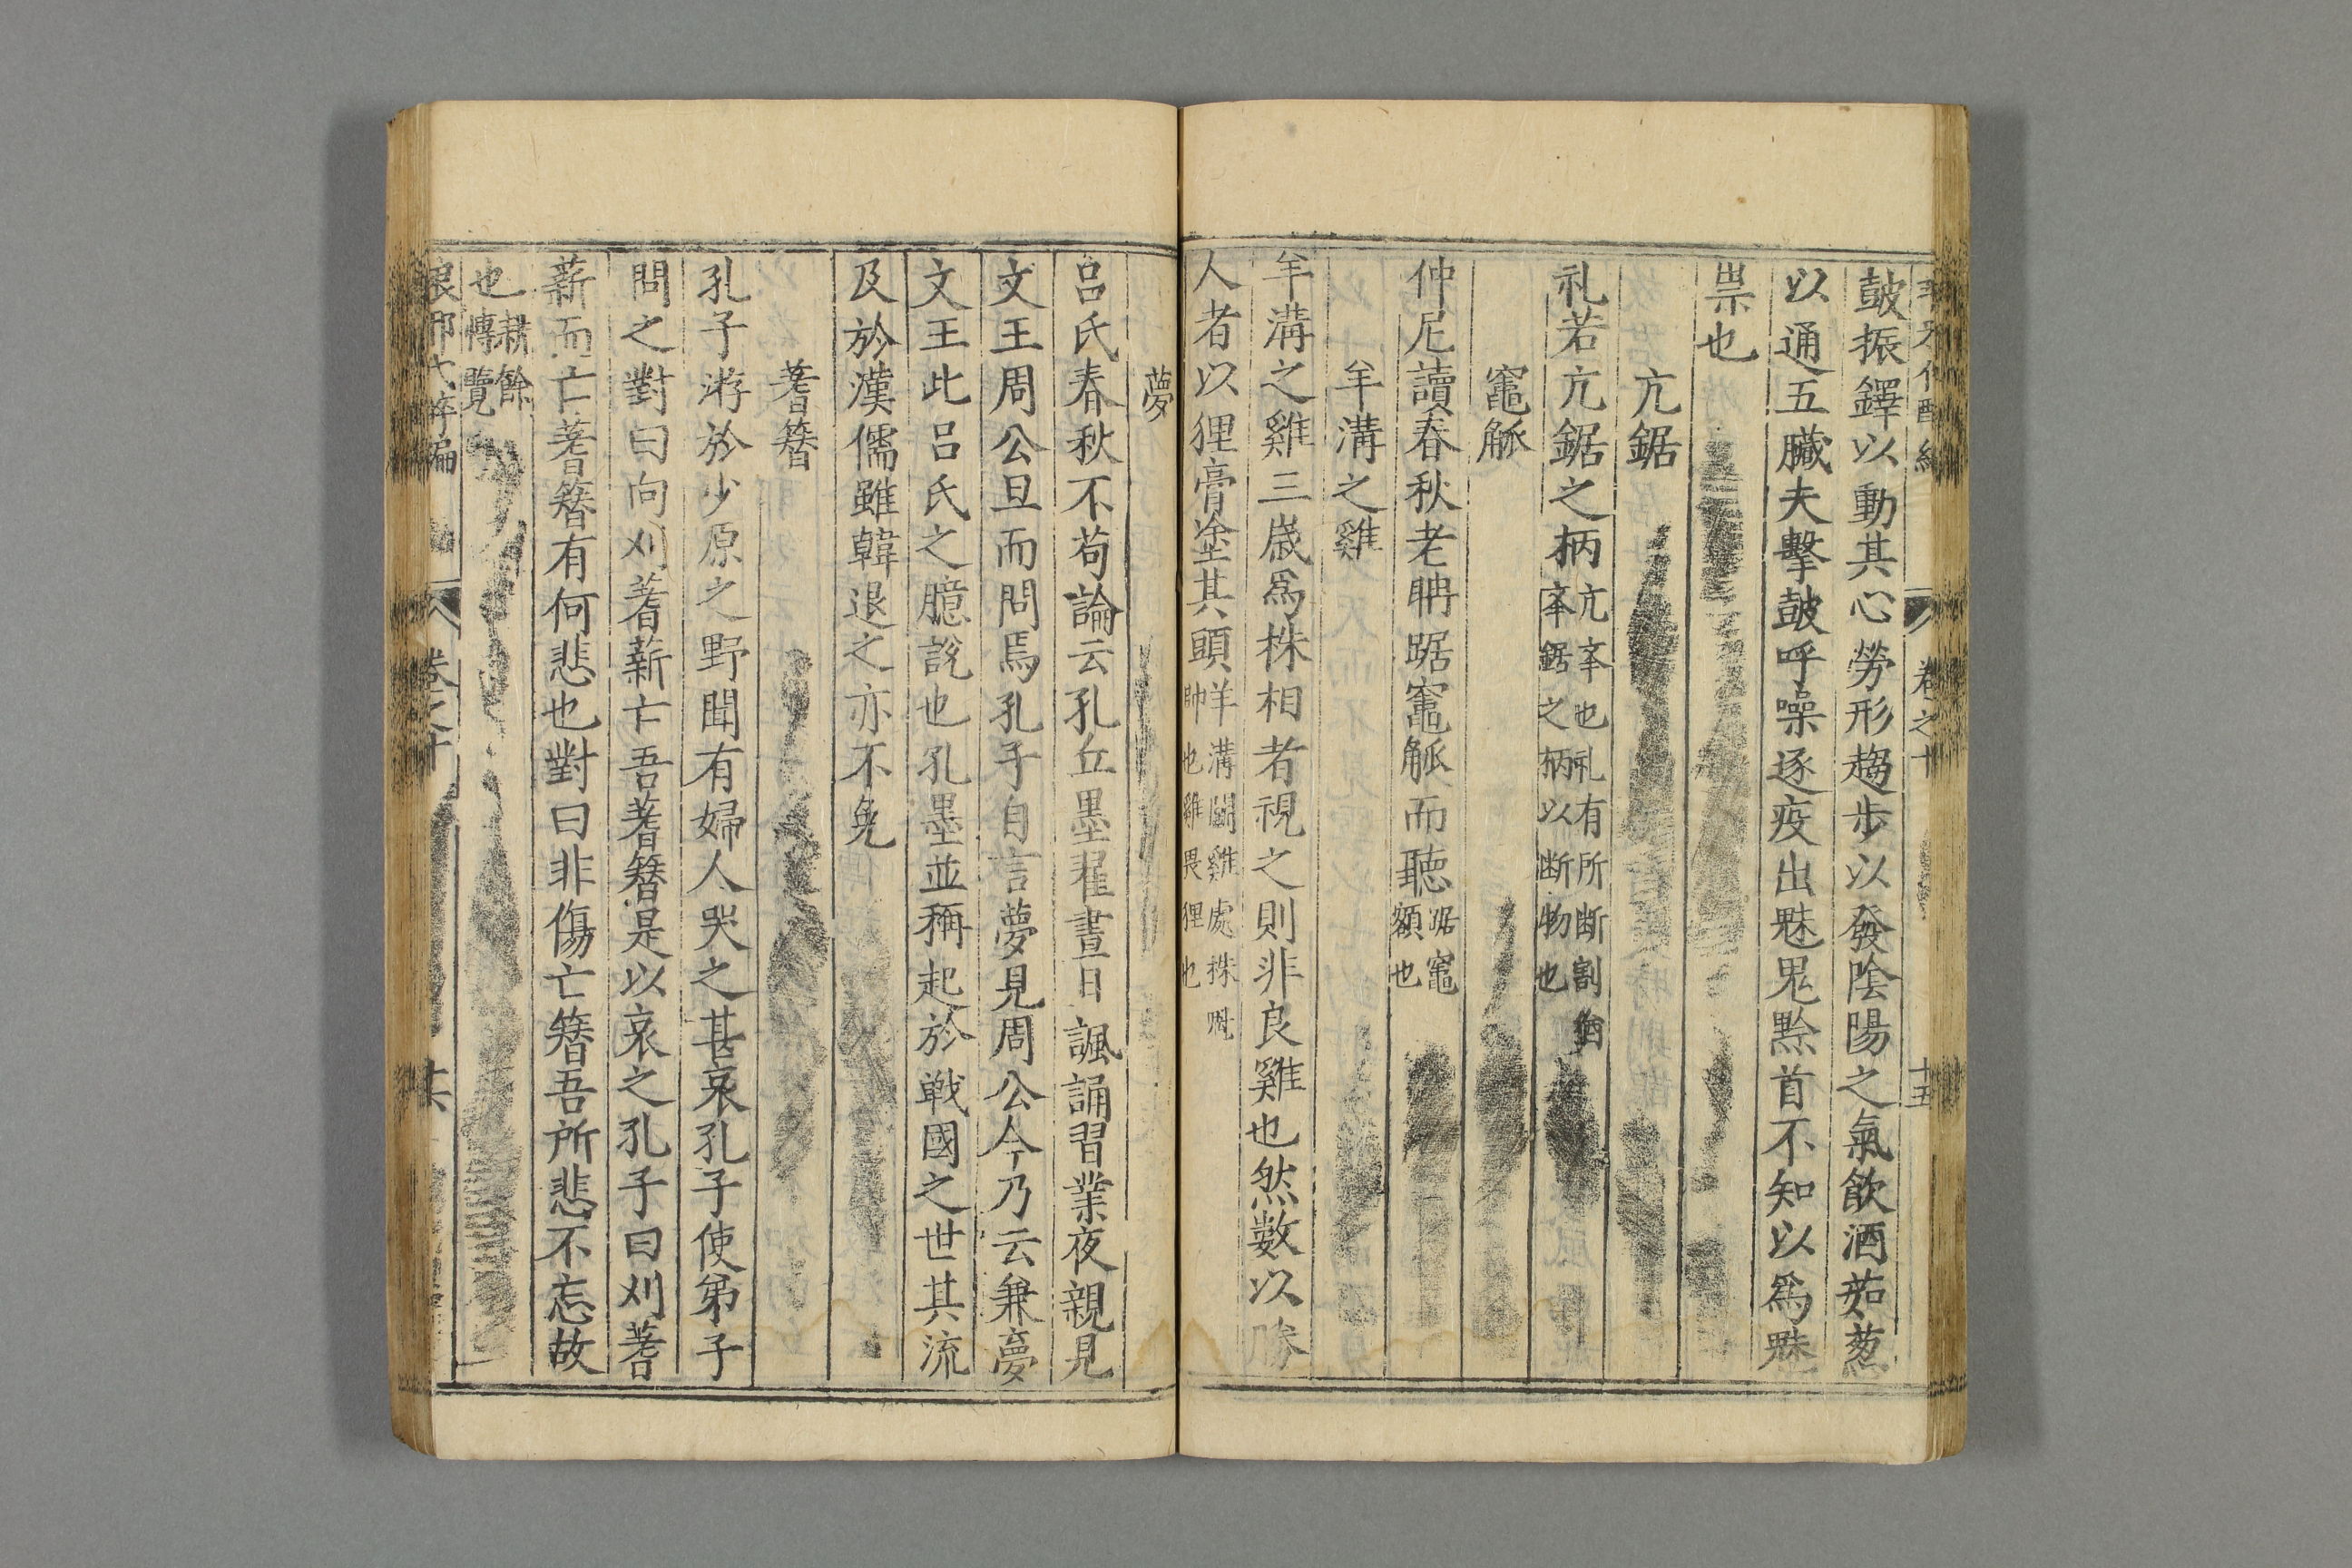 鼓振鐸以動其心勞形趨步以發陰陽之氣飲酒茹葱
以通五臟夫擊鼓呼噪逐疫出魅鬼黔首不知以爲魅
祟也
亢鋸
礼若亢鋸之柄亢莘也礼有所断割猶
莘鋸之柄以断物也
竈觚
仲尼讀春秋老聃踞竈觚而聽踞竈
額也
羊溝之雞
羊溝之雞三歲爲株相者視之則非良雞也然數以勝
人者以狸膏塗其頭羊溝鬪雞處株魁
帥也雞畏狸也
夢
呂氏春秋不苟論云孔丘墨翟晝日諷誦習業夜親見
文王周公旦而問焉孔子自言夢見周公今乃云兼夢
文王此呂氏之臆說也孔墨並稱起於戰國之世其流
及於漢儒雖韓退之亦不免
蓍簪
孔子游於少原之野聞有婦人哭之甚哀孔子使弟子
問之對曰向刈蓍薪亡吾蓍簪是以哀之孔子曰刈蓍
薪而亡蓍簪有何悲也對曰非傷亡簪吾所悲不忘故
也耕餘
博覽
卷之十
十五